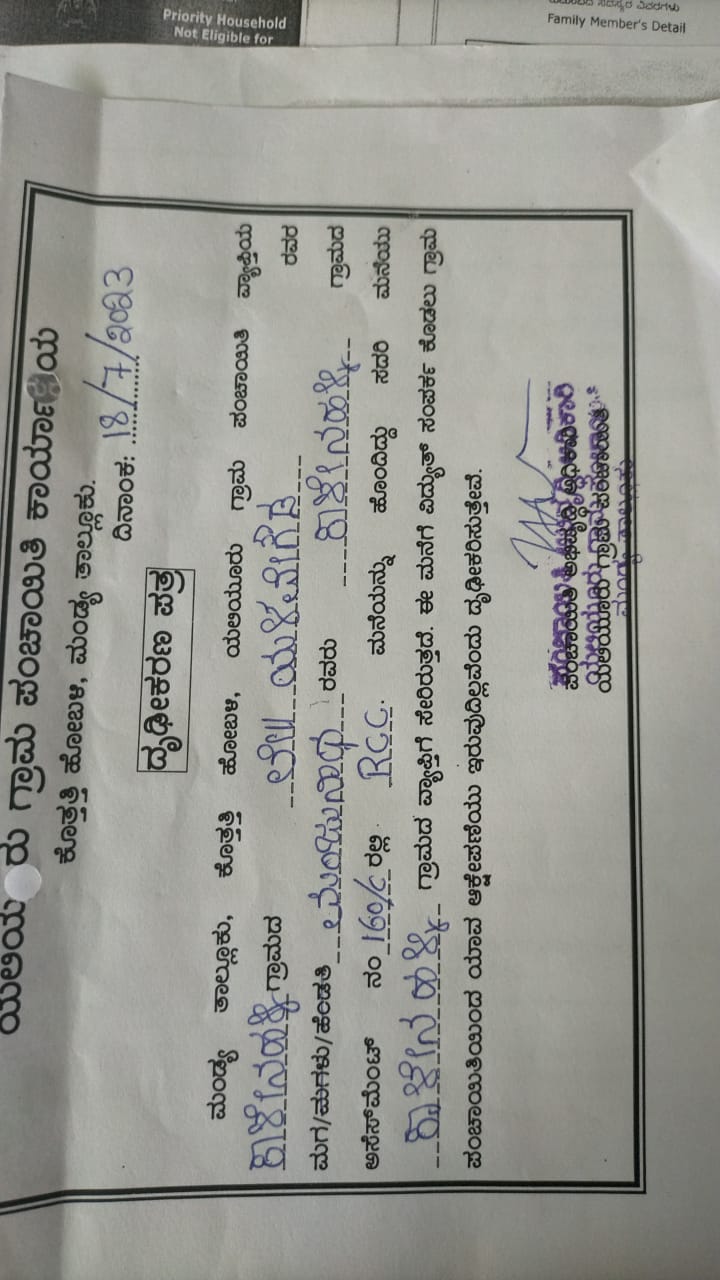 Priority Household
Not Eligible for
Family Member's Detail
ಯಲಿಯೂರು ಗ್ರಾಮ ಪಂಚಾಯಿತಿ ಕಾರ್ಯಾಲಯ
ಕೊತ್ತತ್ತಿ ಹೋಬಳಿ, ಮಂಡ್ಯ ತಾಲ್ಲೂಕು.
ದಿನಾಂಕ: 18/7/2023
ದೃಢೀಕರಣ ಪತ್ರ
ಮಂಡ್ಯ ತಾಲ್ಲೂಕು, ಕೊತ್ತತ್ತಿ ಹೋಬಳಿ, ಯಲಿಯೂರು ಗ್ರಾಮ ಪಂಚಾಯಿತಿ ವ್ಯಾಪ್ತಿಯ
ಕಾಳೇನಹಳ್ಳಿ ಗ್ರಾಮದ ರವರ
ಮಗ/ಮಗಳು/ಹೆಂಡತಿ ಮಂಜುನಾಥ ರವರು ಕಾಳೇನಹಳ್ಳಿ ಗ್ರಾಮದ
ಅಸೆಸ್‌ಮೆಂಟ್ ನಂ 160/c ರಲ್ಲಿ RCC. ಮನೆಯನ್ನು ಹೊಂದಿದ್ದು ಸದರಿ ಮನೆಯು
ಕಾಳೇನಹಳ್ಳಿ ಗ್ರಾಮದ ವ್ಯಾಪ್ತಿಗೆ ಸೇರಿರುತ್ತದೆ. ಈ ಮನೆಗೆ ವಿದ್ಯುತ್ ಸಂಪರ್ಕ ಕೊಡಲು ಗ್ರಾಮ
ಪಂಚಾಯಿತಿಯಿಂದ ಯಾವ ಆಕ್ಷೇಪಣೆಯು ಇರುವುದಿಲ್ಲವೆಂದು ದೃಢೀಕರಿಸುತ್ತೇವೆ.
ಪಂಚಾಯಿತಿ ಅಭಿವೃದ್ಧಿ ಅಧಿಕಾರಿ
ಯಲಿಯೂರು ಗ್ರಾಮ ಪಂಚಾಯಿತಿ
ಮಂಡ್ಯ ತಾಲ್ಲೂಕು